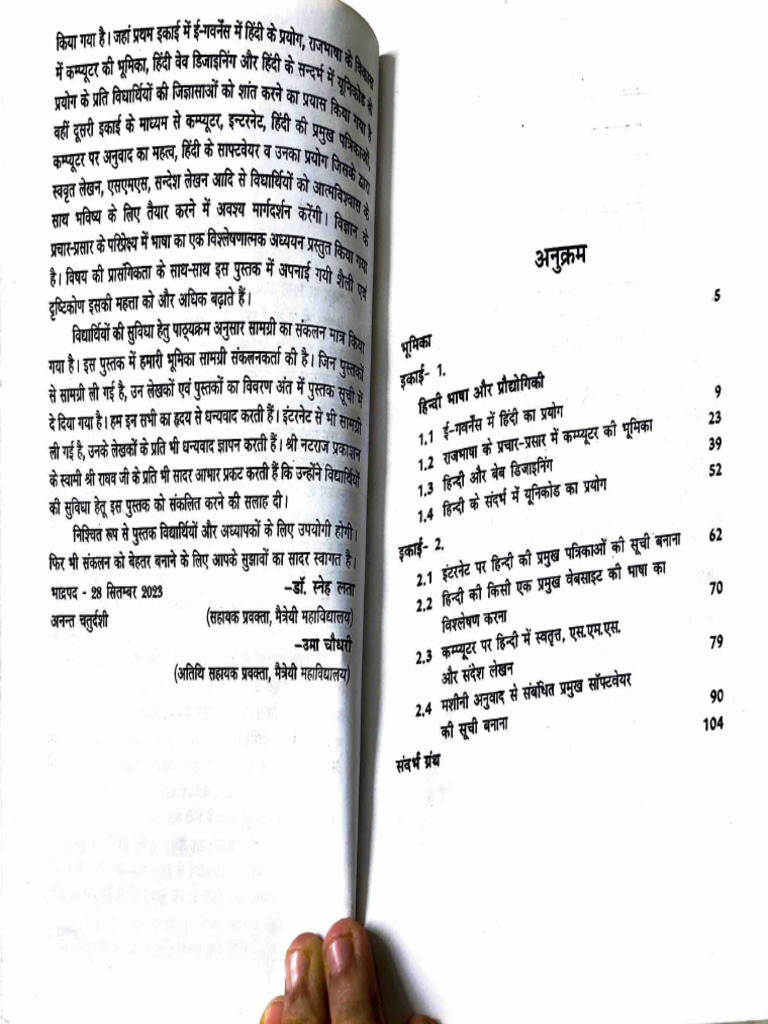 किया गया है। जहां प्रथम इकाई में ई-गवर्नेंस में हिंदी के प्रयोग, राजभाषा के विकास
में कम्प्यूटर की भूमिका, हिंदी वेव डिजाइनिंग और हिंदी के सन्दर्भ में यूनिकोड के
प्रयोग के प्रति विधार्थियों की जिज्ञासाओं को शांत करने का प्रयास किया गया है
वहीं दूसरी इकाई के माध्यम से कम्प्यूटर, इन्टरनेट, हिंदी की प्रमुख पत्रिकाओं,
कम्प्यूटर पर अनुवाद का महत्व, हिंदी के साफ्टवेयर व उनका प्रयोग जिसके द्वारा
स्ववृत लेखन, एसएमएस, सन्देश लेखन आदि से विधार्थियों को आत्मविश्वास के
साथ भविष्य के लिए तैयार करने में अवश्य मार्गदर्शन करेंगी। विज्ञान के
प्रचार-प्रसार के परिप्रेक्ष्य में भाषा का एक विश्लेषणात्मक अध्ययन प्रस्तुत किया गया
है। विषय की प्रासंगिकता के साथ-साथ इस पुस्तक में अपनाई गयी शैली एवं
दृष्टिकोण इसकी महत्ता को और अधिक बढ़ाते हैं।
विद्यार्थियों की सुविधा हेतु पाठ्यक्रम अनुसार सामग्री का संकलन मात्र किया
गया है। इस पुस्तक में हमारी भूमिका सामग्री संकलनकर्ता की है। जिन पुस्तकों
से सामग्री ली गई है, उन लेखकों एवं पुस्तकों का विवरण अंत में पुस्तक सूची में
दे दिया गया है। हम इन सभी का हृदय से धन्यवाद करती हैं। इंटरनेट से भी सामग्री
ली गई है, उनके लेखकों के प्रति भी धन्यवाद ज्ञापन करती हैं। श्री नटराज प्रकाशन
के स्वामी श्री राघव जी के प्रति भी सादर आभार प्रकट करती हैं कि उन्होंने विद्यार्थियों
की सुविधा हेतू इस पुस्तक को संकलित करने की सलाह दी।
निश्चित रूप से पुस्तक विद्यार्थियों और अध्यापकों के लिए उपयोगी होगी।
फिर भी संकलन को बेहतर बनाने के लिए आपके सुझावों का सादर स्वागत है।
भाद्रपद - 28 सितम्बर 2023 –डॉ. स्नेह लता
अनन्त चतुर्दशी (सहायक प्रवक्ता, मैत्रेयी महाविद्यालय)
–उमा चौधरी
(अतिथि सहायक प्रवक्ता, मैत्रेयी महाविद्यालय)
अनुक्रम
भूमिका 5
इकाई- 1.
हिन्दी भाषा और प्रौद्योगिकी
1.1 ई-गवर्नेंस में हिंदी का प्रयोग 9
1.2 राजभाषा के प्रचार-प्रसार में कम्प्यूटर की भूमिका 23
1.3 हिन्दी और बेब डिजाइनिंग 39
1.4 हिन्दी के संदर्भ में यूनिकोड का प्रयोग 52
इकाई- 2.
2.1 इंटरनेट पर हिन्दी की प्रमुख पत्रिकाओं की सूची बनाना 62
2.2 हिन्दी की किसी एक प्रमुख वेबसाइट की भाषा का
विश्लेषण करना 70
2.3 कम्प्यूटर पर हिन्दी में स्वतृत्त, एस.एम.एस.
और संदेश लेखन 79
2.4 मशीनी अनुवाद से संबंधित प्रमुख सॉफ्टवेयर
की सूची बनाना 90
संदर्भ ग्रंथ 104